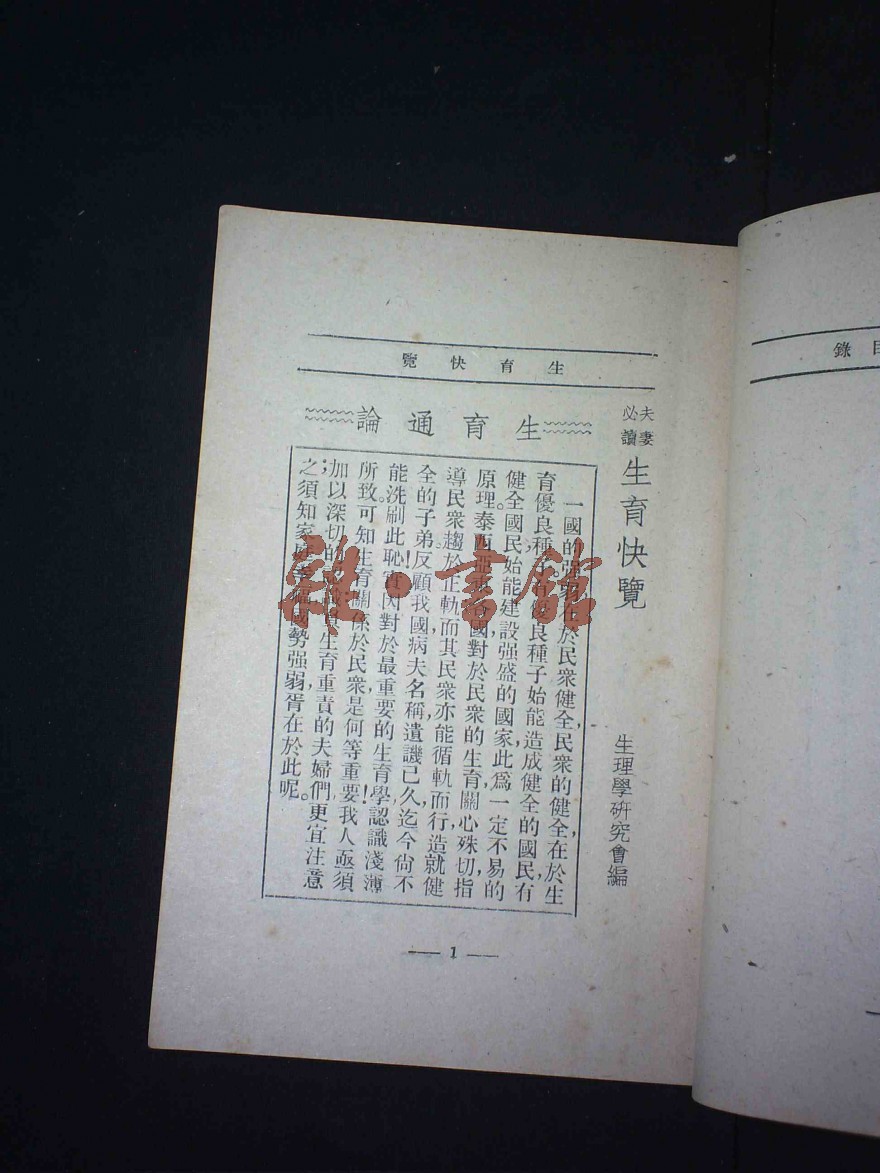 生育快覽
目錄
夫妻必讀
生育快覽
生理學研究會編
生育通論
一國的强弱在於民衆健全,民衆的健全在於生
育優良種子,有優良種子始能造成健全的國民有
健全國民始能建設强盛的國家,此爲一定不易的
原理,泰西亞東各國對於民衆的生育關心殊切指
導民衆趨於正軌而其民衆亦能循軌而行,造就健
全的子弟!反顧我國病夫名稱,遺譏已久,迄今尙不
能洗刷此恥,實因對於最重要的生育學認識淺薄
所致,可知生育關係於民衆是何等重要!我人亟須
加以深切的 生育重責的夫婦們,更宜注意
;之須知家庭幸福,國勢强弱胥在於此呢。
— 1 —
雜·書館